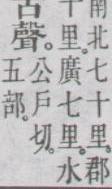 南北七十里。郡
十里。廣七十里。水
古聲。公戸切。
五部。